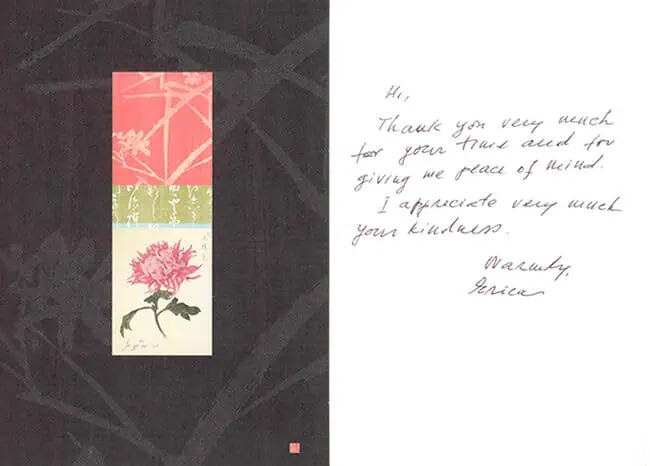 Hi,
Thank you very much
for your time and for
giving me peace of mind.
I appreciate very much
your kindness.
Warmly,
Erica